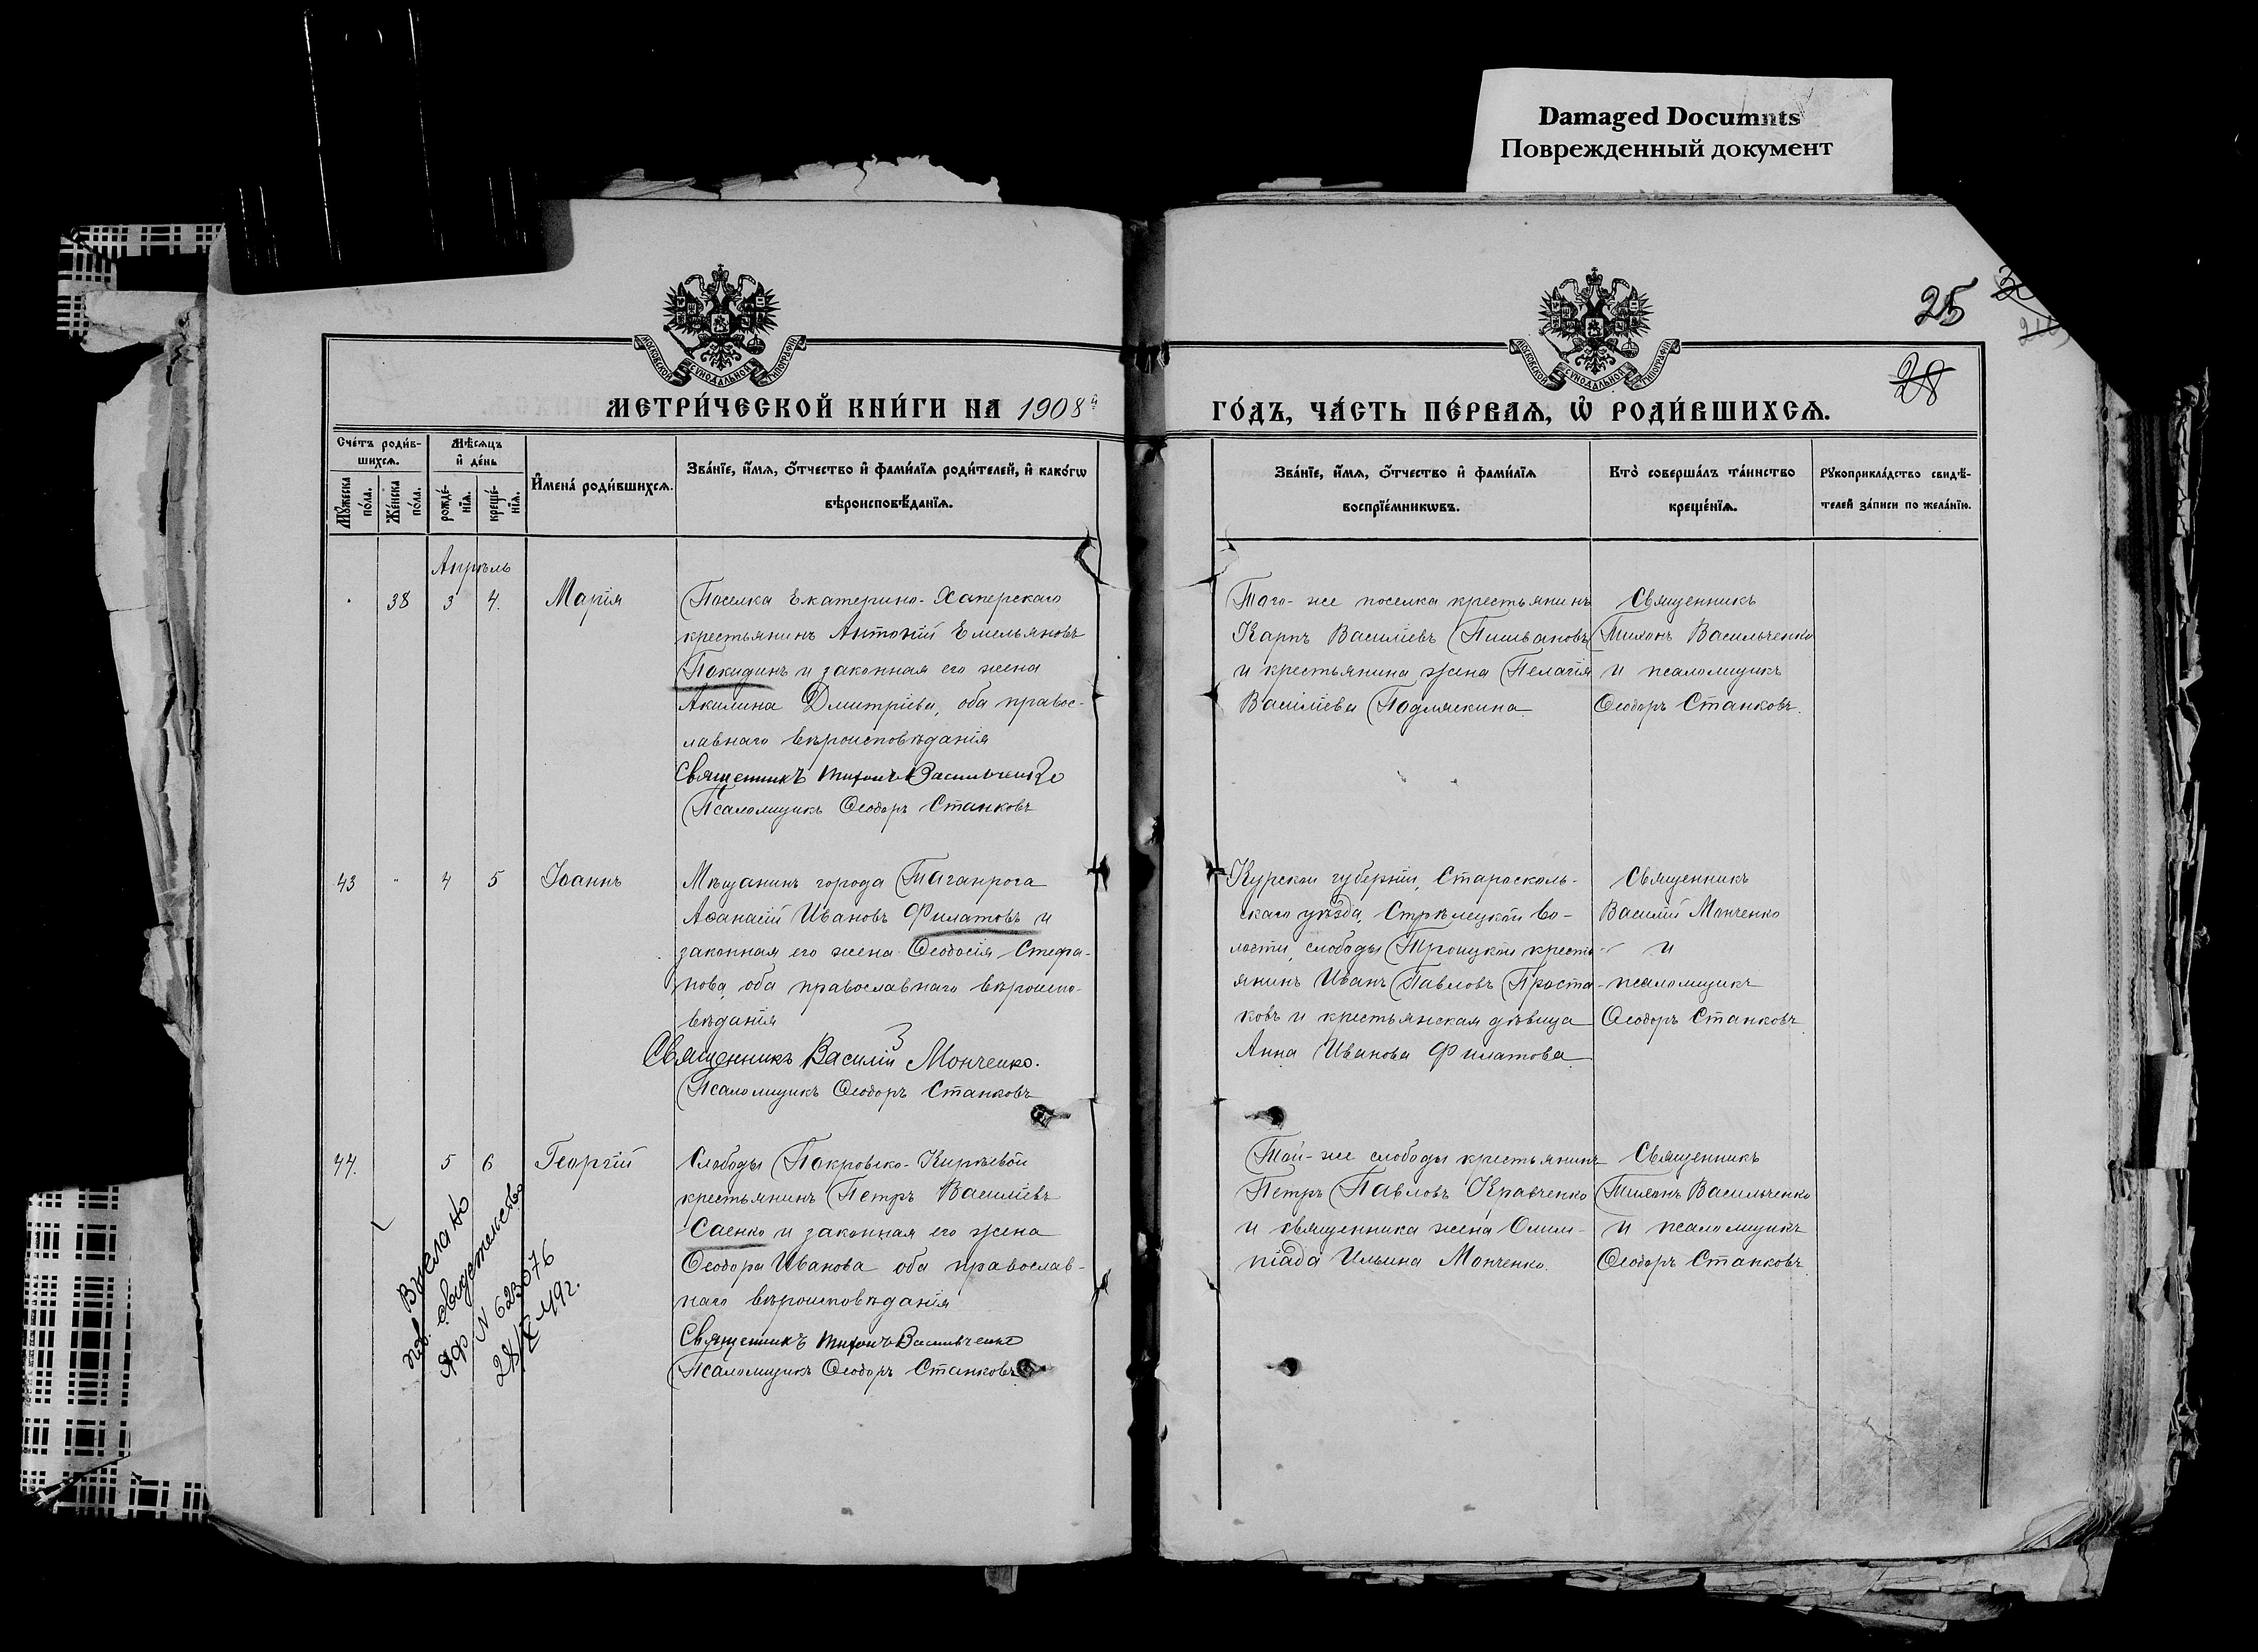 Damaged Documnts
Поврежденный документ
25
28
МОСКОВСКОЙ СѴНОДАЛЬНОЙ ТИПОГРАФІИ
МОСКОВСКОЙ СѴНОДАЛЬНОЙ ТИПОГРАФІИ
МЕТРИ́ЧЕСКОЙ КНИ́ГИ НА 1908й
ГО́ДЪ, ЧА́СТЬ ПЕ́РВАѦ, Ѡ҆ РОДИ́ВШИХСѦ.
Сче́тъ роди́в-
шихсѧ.
Мѣ́сѧцъ
и҆ де́нь
Мꙋ́жеска
по́ла.
Же́нска
по́ла.
рожде́-
нїѧ.
креще́-
нїѧ.
И҆мена̀ роди́вшихсѧ.
Зва́нїе, и҆́мѧ, ѻ҆́тчество и҆ фами́лїѧ роди́телей, и҆ како́гѡ
вѣроисповѣ́данїѧ.
Зва́нїе, и҆́мѧ, ѻ҆́тчество и҆ фами́лїѧ
воспрїе́мникѡвъ.
Кто̀ соверша́лъ та́инство
креще́нїѧ.
Рꙋкоприкла́дство свидѣ́-
телей за́писи по жела́нїю.
Апрѣль
38 3 4. Марія
Поселка Екатерино-Хаперскаго
крестьянинъ Антоній Емельяновъ
Покидинъ и законная его жена
Акилина Дмитріева, оба правос-
лавнаго вѣроисповѣданія
Священникъ Тихонъ Васильченко
Псаломщикъ Ѳеодоръ Станковъ
Того-же поселка крестьянинъ
Карпъ Василіевъ Пишвановъ
и крестьянина жена Пелагія
Василіева Подляскина.
Священникъ
Тихонъ Васильченко
и псаломщикъ
Ѳеодоръ Станковъ.
43 " 4 5 Іоаннъ
Мѣщанинъ города Таганрога
Аѳанасій Ивановъ Филатовъ и
законная его жена Ѳеодосія Стефа-
нова, оба православнаго вѣроиспо-
вѣданія
Священникъ Василій Монченко.
Псаломщикъ Ѳеодоръ Станковъ
Курской губерніи, Староосколь-
скаго уѣзда, Стрѣлецкой во-
лости, слободы Троицкой кресть-
янинъ Иванъ Павловъ Проста-
ковъ и крестьянская дѣвица
Анна Иванова Филатова.
Священникъ
Василій Монченко
и
псаломщикъ
Ѳеодоръ Станковъ.
44. 5 6 Георгій
Слободы Покровско-Кирѣевой
крестьянинъ Петръ Василіевъ
Саенко и законная его жена
Ѳеодора Иванова оба православ-
наго вѣроисповѣданія
Священникъ Тихонъ Васильченко
Псаломщикъ Ѳеодоръ Станковъ
Той-же слободы крестьянинъ
Петръ Павловъ Кравченко
и священника жена Олим-
піада Ильина Монченко.
Священникъ
Тихонъ Васильченко
и псаломщикъ
Ѳеодоръ Станковъ.
Выслано
пов. свидетельство
N 623076